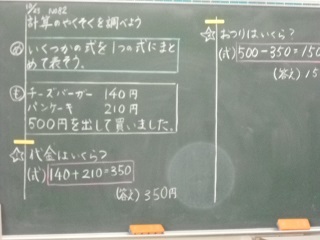 計算のやくそくを調べよう
いくつかの式を1つの式にまと
めて表そう。
チーズバーガー 140円
パンケーキ 210円
500円を出して買いました。
代金はいくら?
(式) 140+210=350
(答え) 350円
おつりはいくら?
(式) 500-350=150
(答え) 15